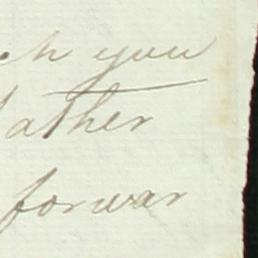 ch you
father
forwar